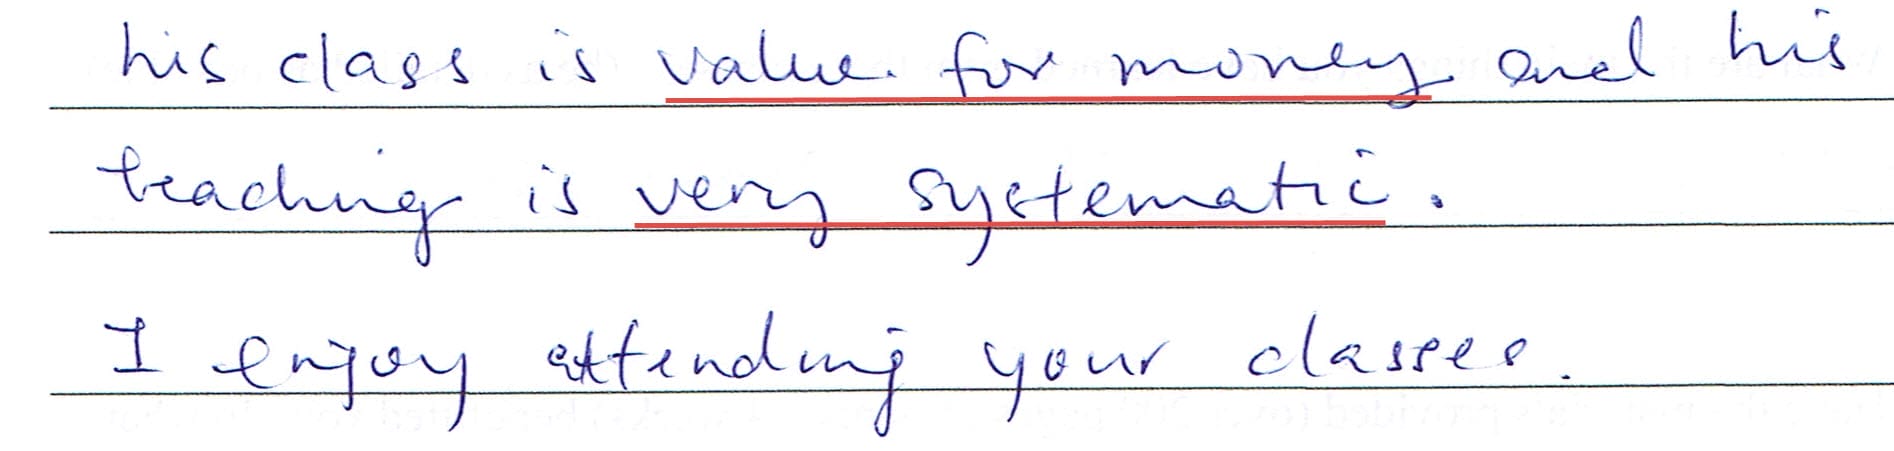 his class is value for money and his
teaching is very systematic.
I enjoy attending your classes.